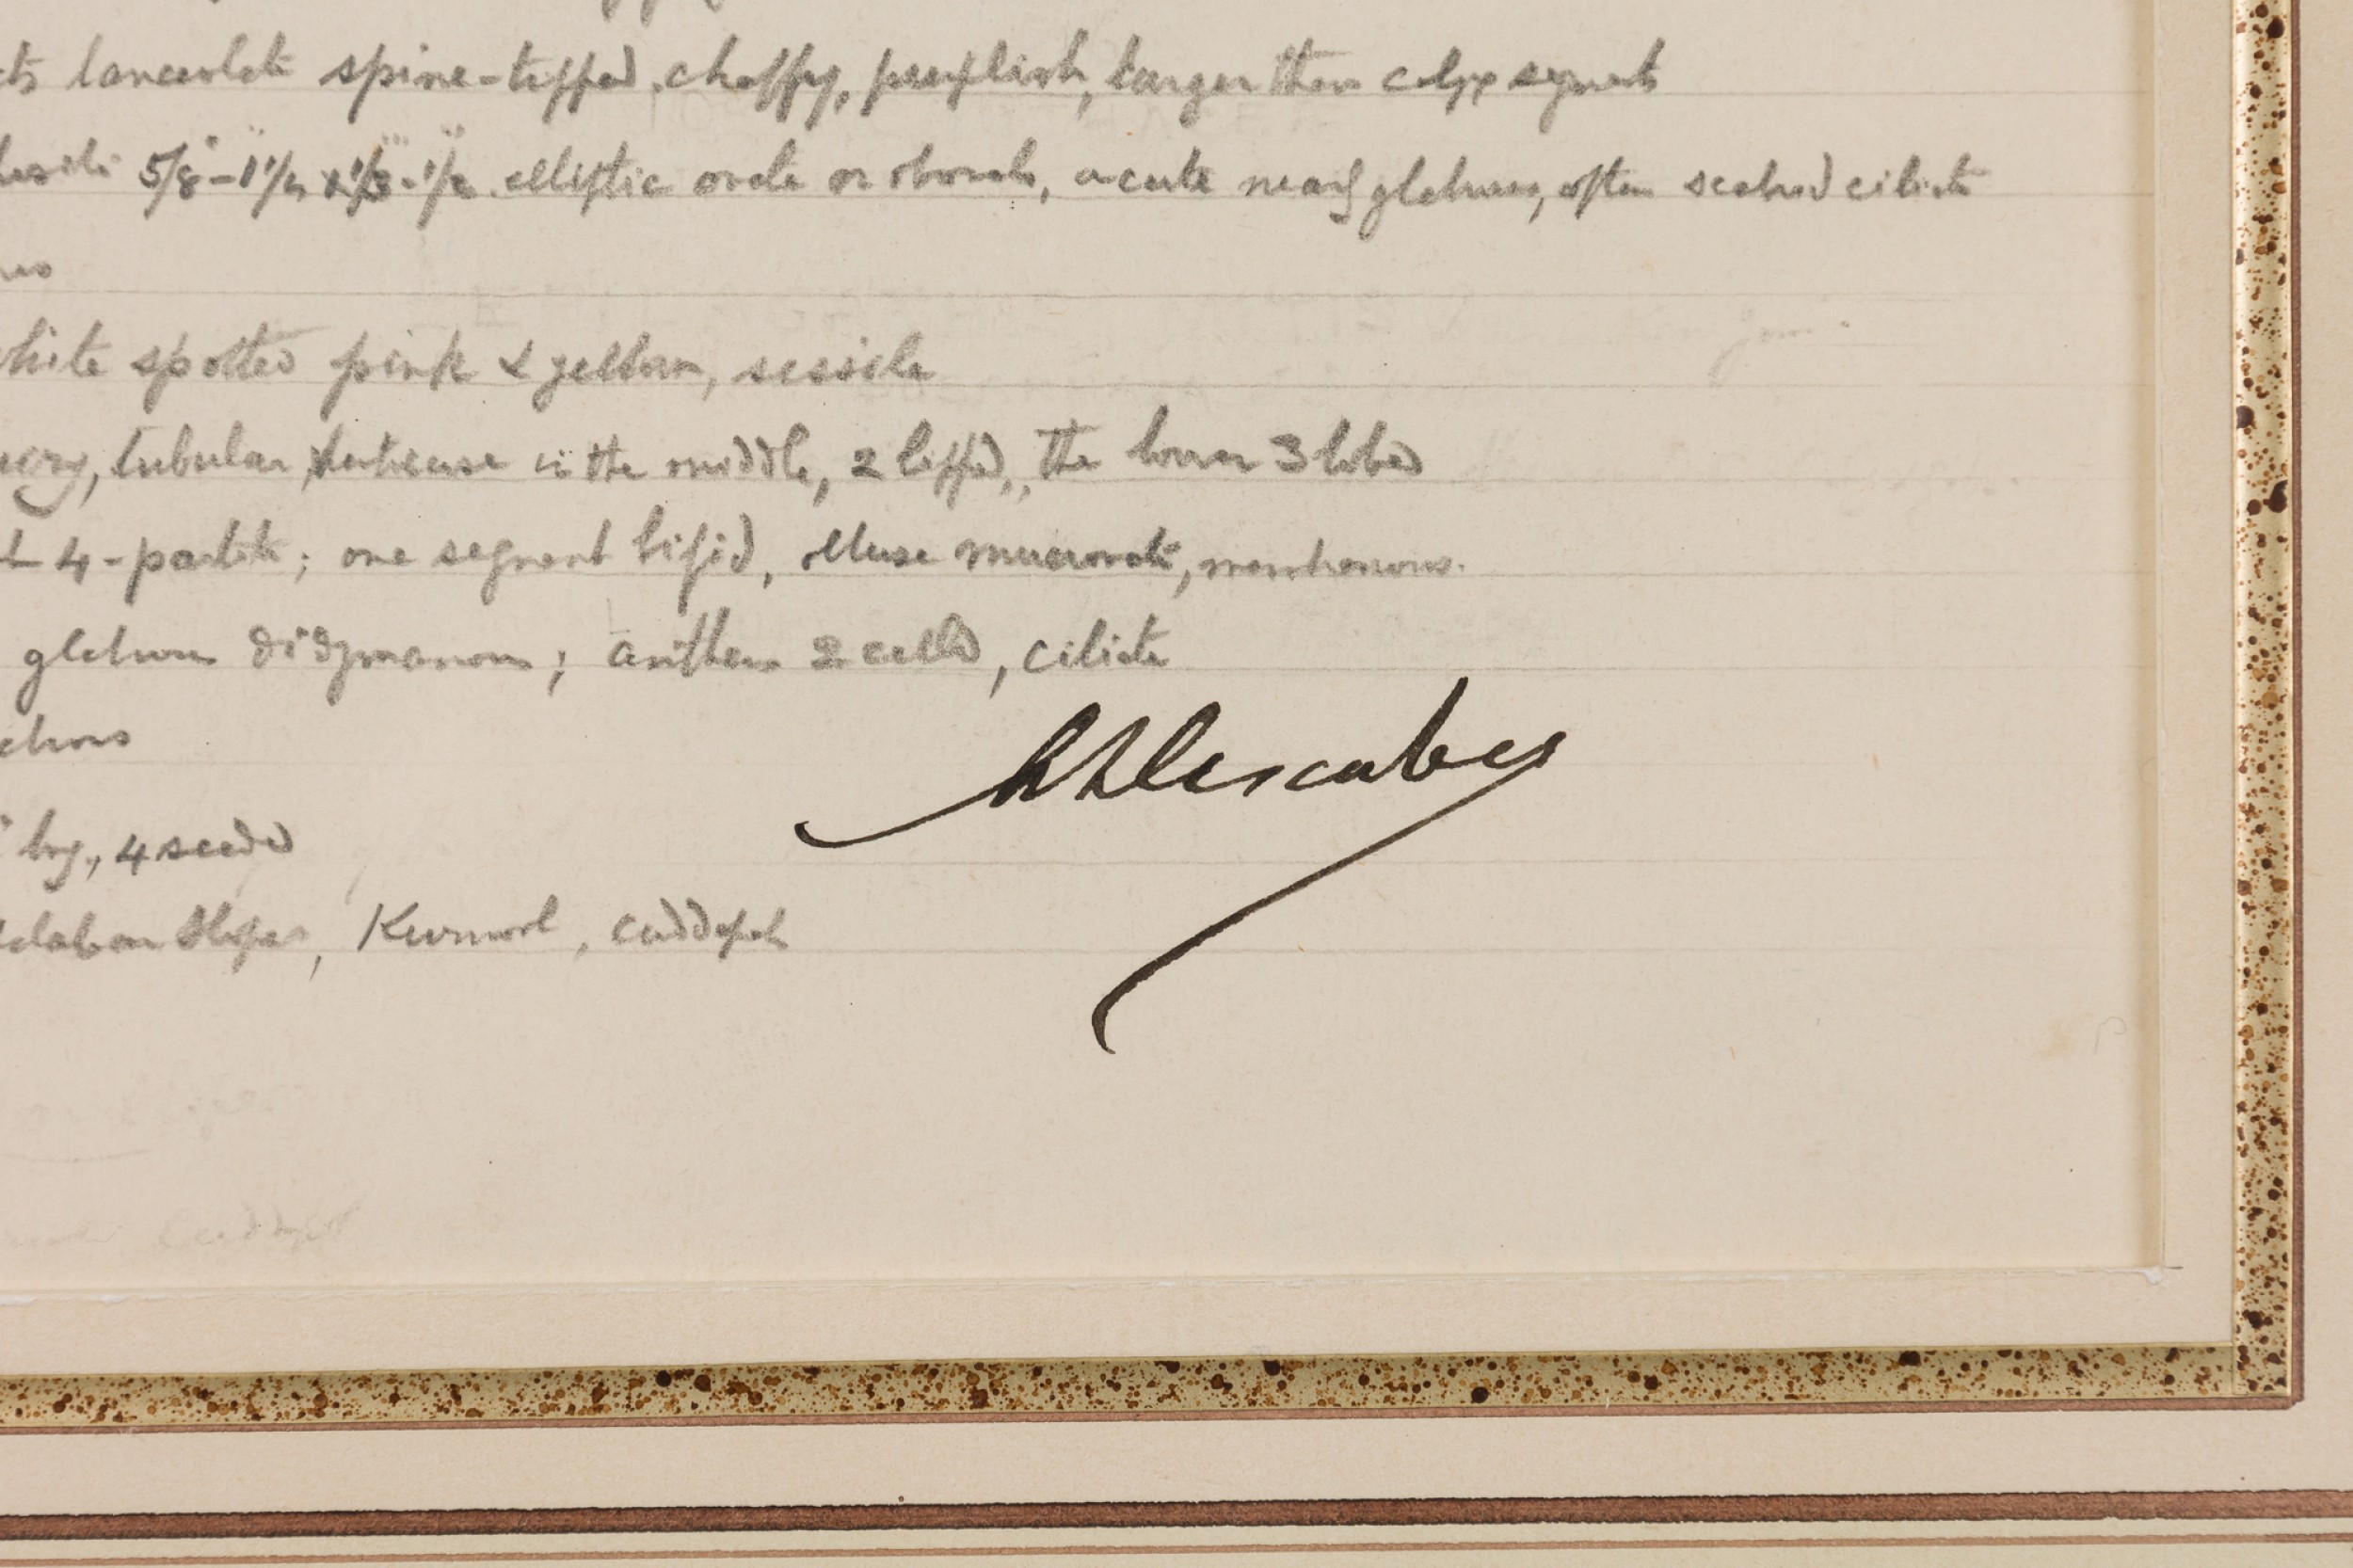 lanceolate spine-tipped, chaffy, purplish, larger than calyx segments
5/8"-1 1/4 x 1/3-1/2 elliptic ovate or obovate, acute nearly glabrous, often scabrid ciliate
white spotted pink & yellow, sessile
tubular in the middle, 2 lipped, the lower 3 lobed
4-partite; one segment bifid, obtuse mucronate, membranous.
glabrous didymanous; anthers 2 celled, ciliate
long, 4 seeded
Kurnool, Cuddapah